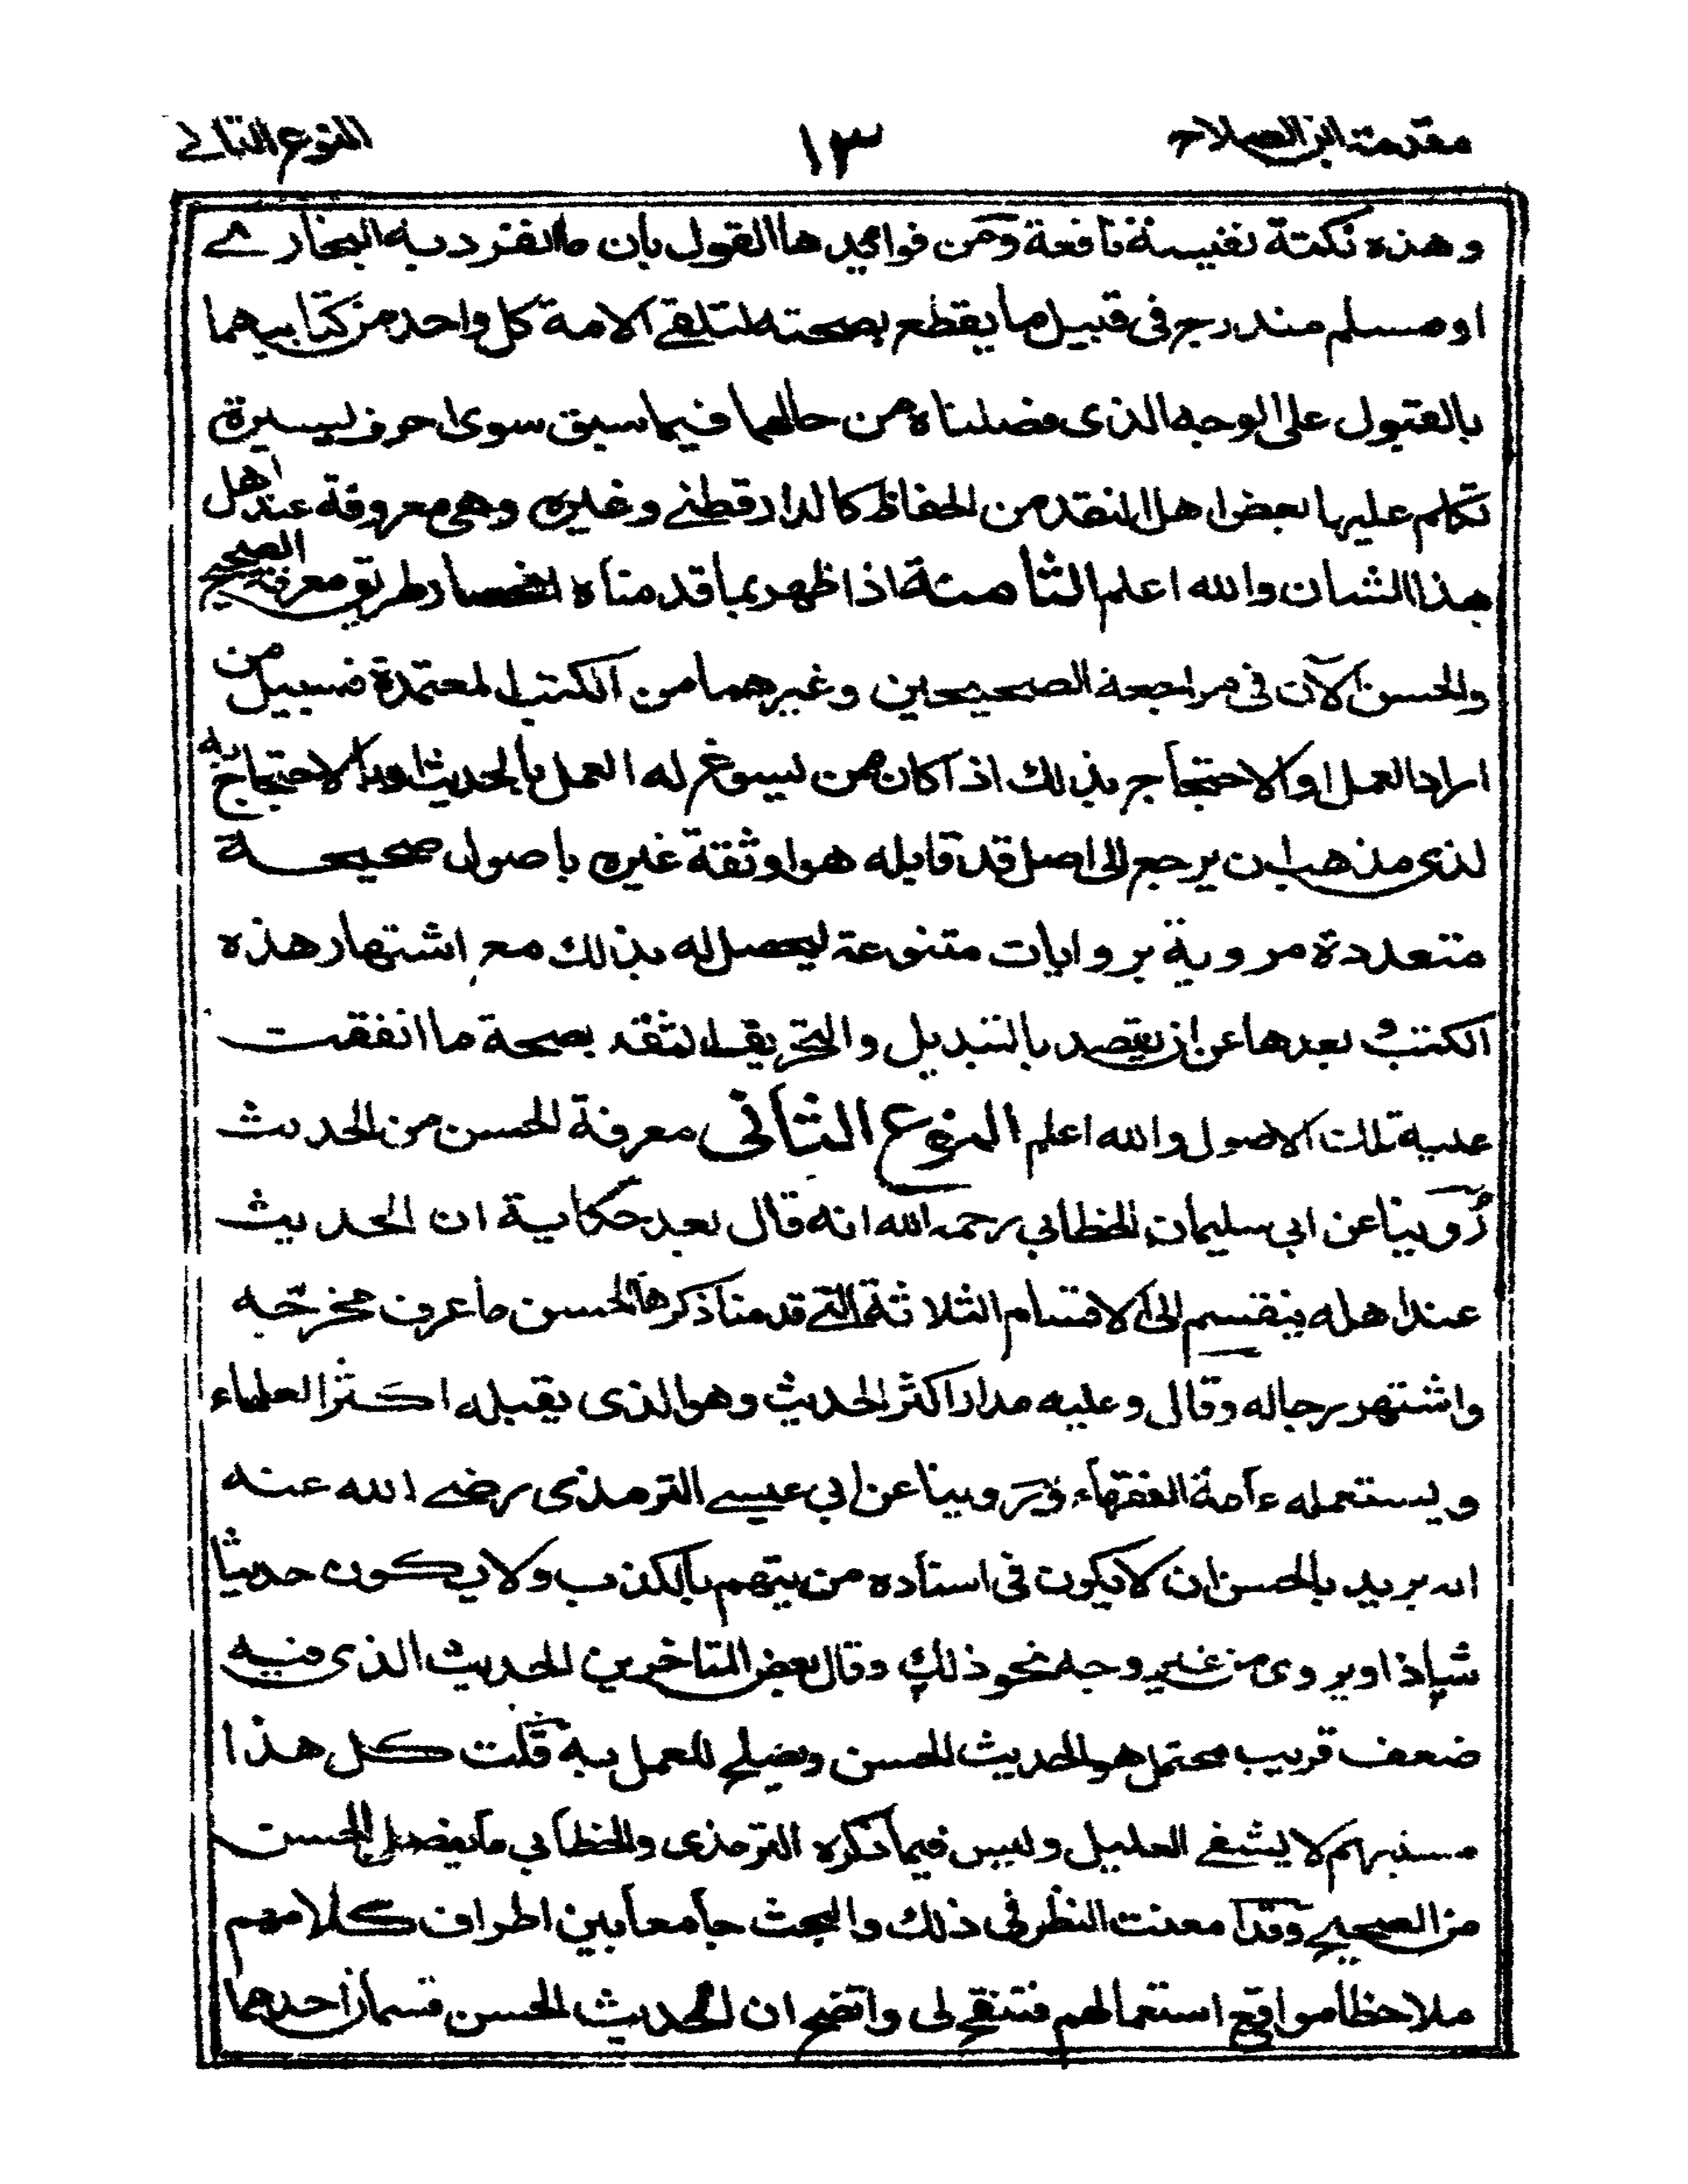 مقدمة ابن الصلاح
١٣
النوع الثانے
وهذه نكتة نفيسة نافعة ومن فوائدها القول بان ما انفرد به البخارے
او مسلم مندرج فى قبيل ما يقطع بصحته لتلقے الامة كل واحد من كتابيهما
بالقبول على الوجه الذى فصلناه من حالهما فيما سبق سوى احرف يسيرة
تكلم عليها بعض اهل النقد من الحفاظ كالدارقطنے وغيره وهى معروفة عند اهل
هذا الشان والله اعلم الثامنة اذا ظهر بما قدمناه انحصار طريق معرفة الصحيح
والحسن الآن فى مراجعة الصحيحين وغيرهما من الكتب المعتمدة فسبيل من
اراد العمل او الاحتجاج بذلك اذا كان ممن يسوغ له العمل بالحديث او الاحتجاج به
لذى مذهب ان يرجع الى اصل قد قابله هو او ثقة غيره باصول صحيحة
متعددة مروية بروايات متنوعة ليحصل له بذلك مع اشتهار هذه
الكتب و بعدها عن ان يقصد بالتبديل والتحريف الثقة بصحة ما اتفقت
عليه تلك الاصول والله اعلم النوع الثانى معرفة الحسن من الحديث
رُوينا عن ابى سليمان الخطابي رحمه الله انه قال بعد حكاية ان الحديث
عند اهله ينقسم الى الاقسام الثلاثة التے قدمنا ذكرها الحسن ما عرف مخرجه
واشتهر رجاله وقال وعليه مدار اكثر الحديث وهو الذى يقبله اكثر العلماء
ويستعمله عامة الفقهاء ورَوينا عن ابي عيسے الترمذى رضے الله عنه
انه يريد بالحسن ان لا يكون فى اسناده من يتهم بالكذب ولا يكون حديثا
شاذا ويروى من غير وجه نحو ذلك وقال بعض المتاخرين الحديث الذى فيه
ضعف قريب محتمل هو الحديث الحسن ويصلح للعمل به قُلت كل هذا
مستبهم لا يشفے العليل وليس فيما ذكره الترمذى والخطابي ما يفصل الحسن
من الصحيح وقد امعنت النظر فى ذلك والبحث جامعا بين اطراف كلامهم
ملاحظا مواقع استعمالهم فتنقح لى واتضح ان الحديث الحسن قسمان احدهما